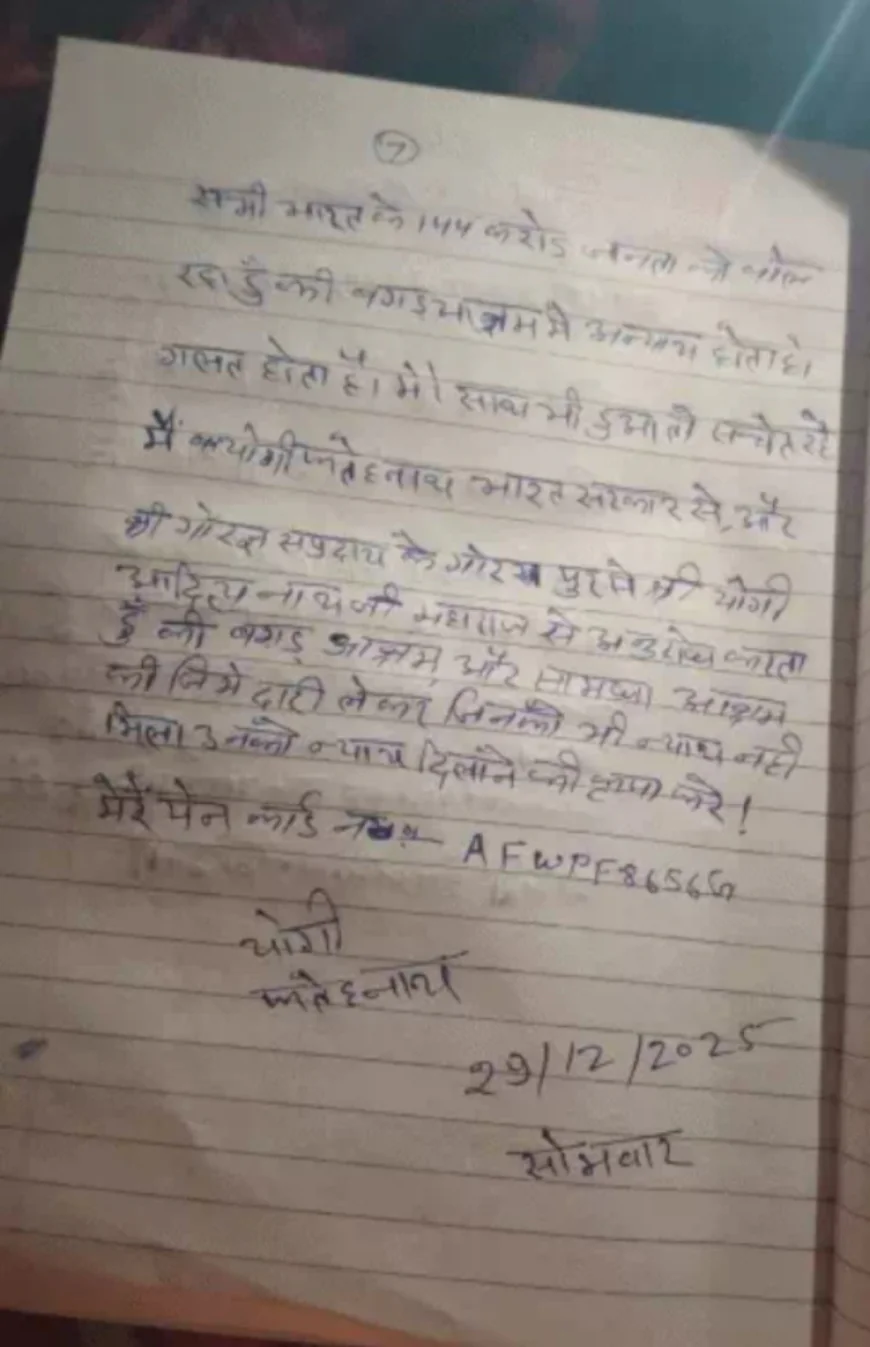 7
सभी भारत के 144 करोड जनता को बोल
रहा हुँ की बगड आश्रम मे अन्याय होता है।
गलत होता है। मेरे साथ भी हुआ तो सचेत रहे
मैं योगी फतेहनाथ भारत सरकार से, और
श्री गोरक्ष सप्रदाय के गोरख पुर से श्री योगी
आदित्य नाथ जी महाराज से अनुरोध करता
हुँ की बगड़ आश्रम, और आश्रम
की जिमेदारी लेकर जिनकों भी न्याय नही
मिला उनकों न्याय दिलाँने की कृपा करे!
मेरें पेन कार्ड न AFWPF8656G
योगी
फतेहनाथ
29/12/2025
सोमवार